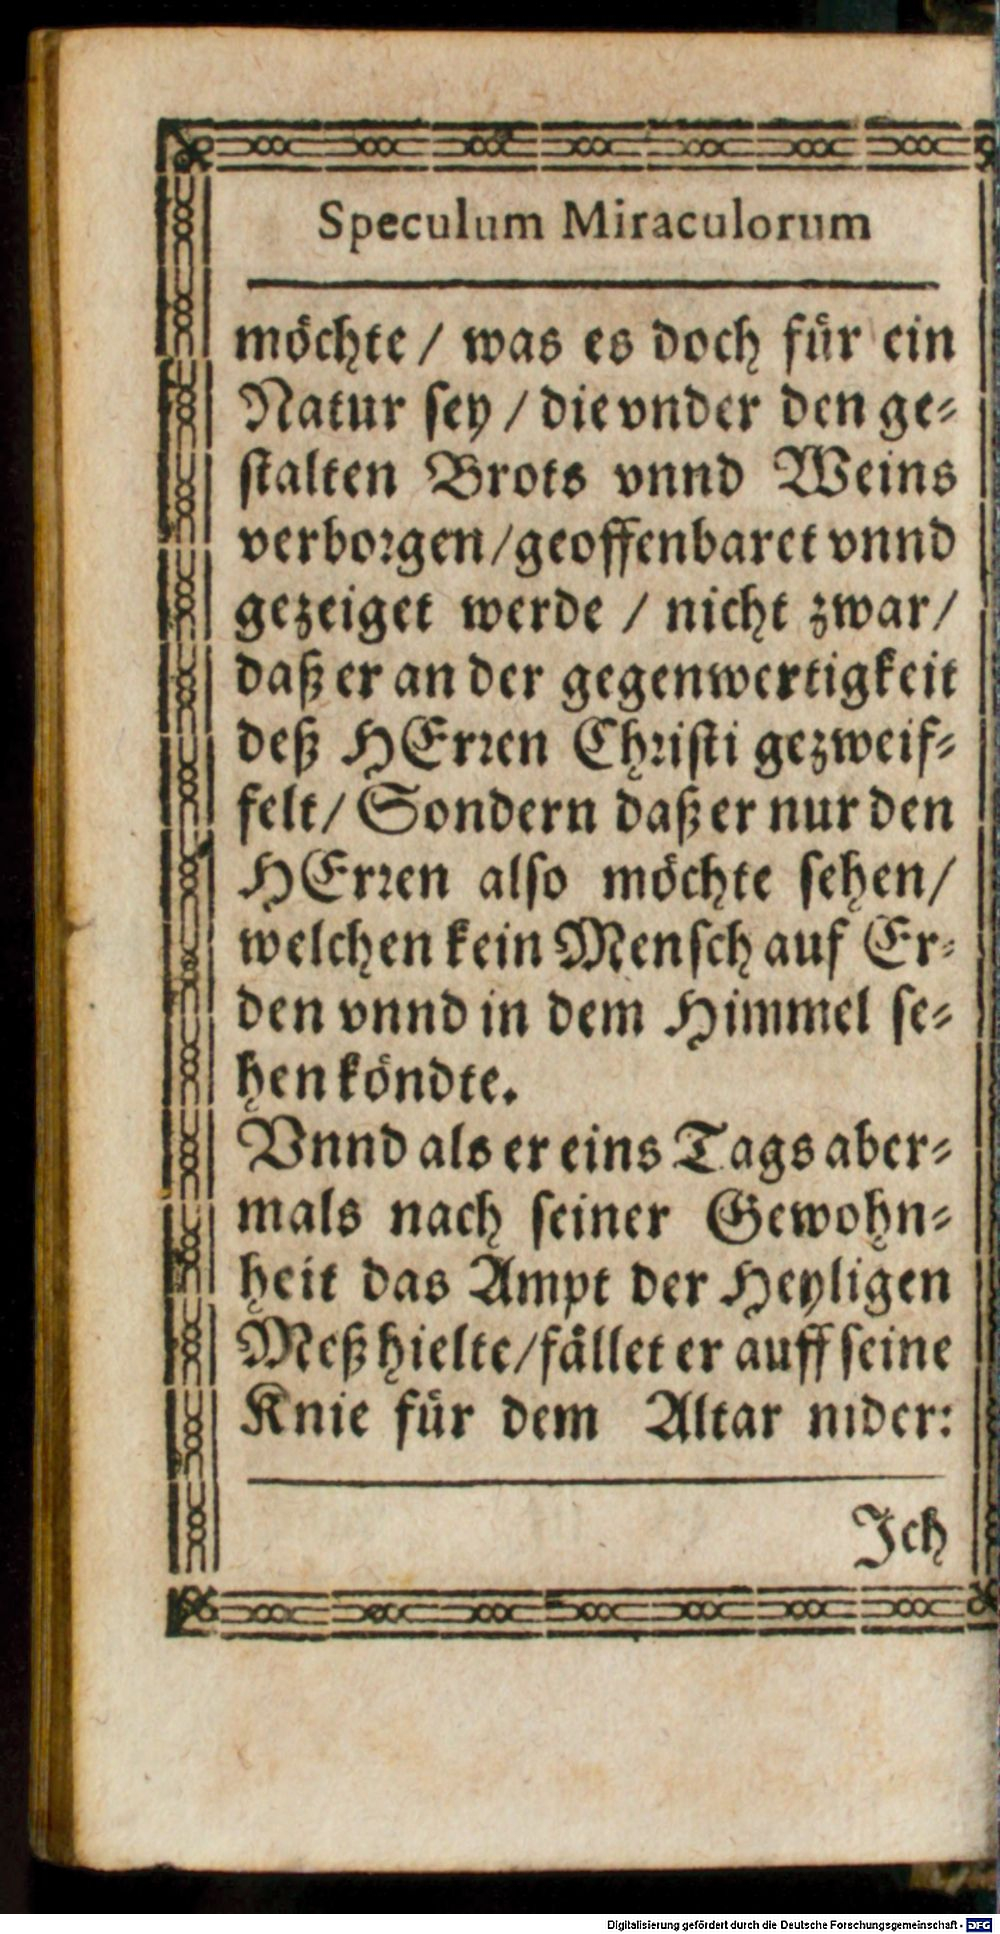 Speculum Miraculorum
möchte / was es doch für ein
Natur sey / die vnder den ge-
stalten Brots vnnd Weins
verborgen / geoffenbaret vnnd
gezeiget werde / nicht zwar /
daß er an der gegenwertigkeit
deß HErren Christi gezweif-
felt / Sondern daß er nur den
HErren also möchte sehen /
welchen kein Mensch auf Er-
den vnnd in dem Himmel se-
hen köndte.
Vnnd als er eins Tags aber-
mals nach seiner Gewohn-
heit das Ampt der Heyligen
Meß hielte / fället er auff seine
Knie für dem Altar nider:
Ich
Digitalisierung gefördert durch die Deutsche Forschungsgemeinschaft - DFG